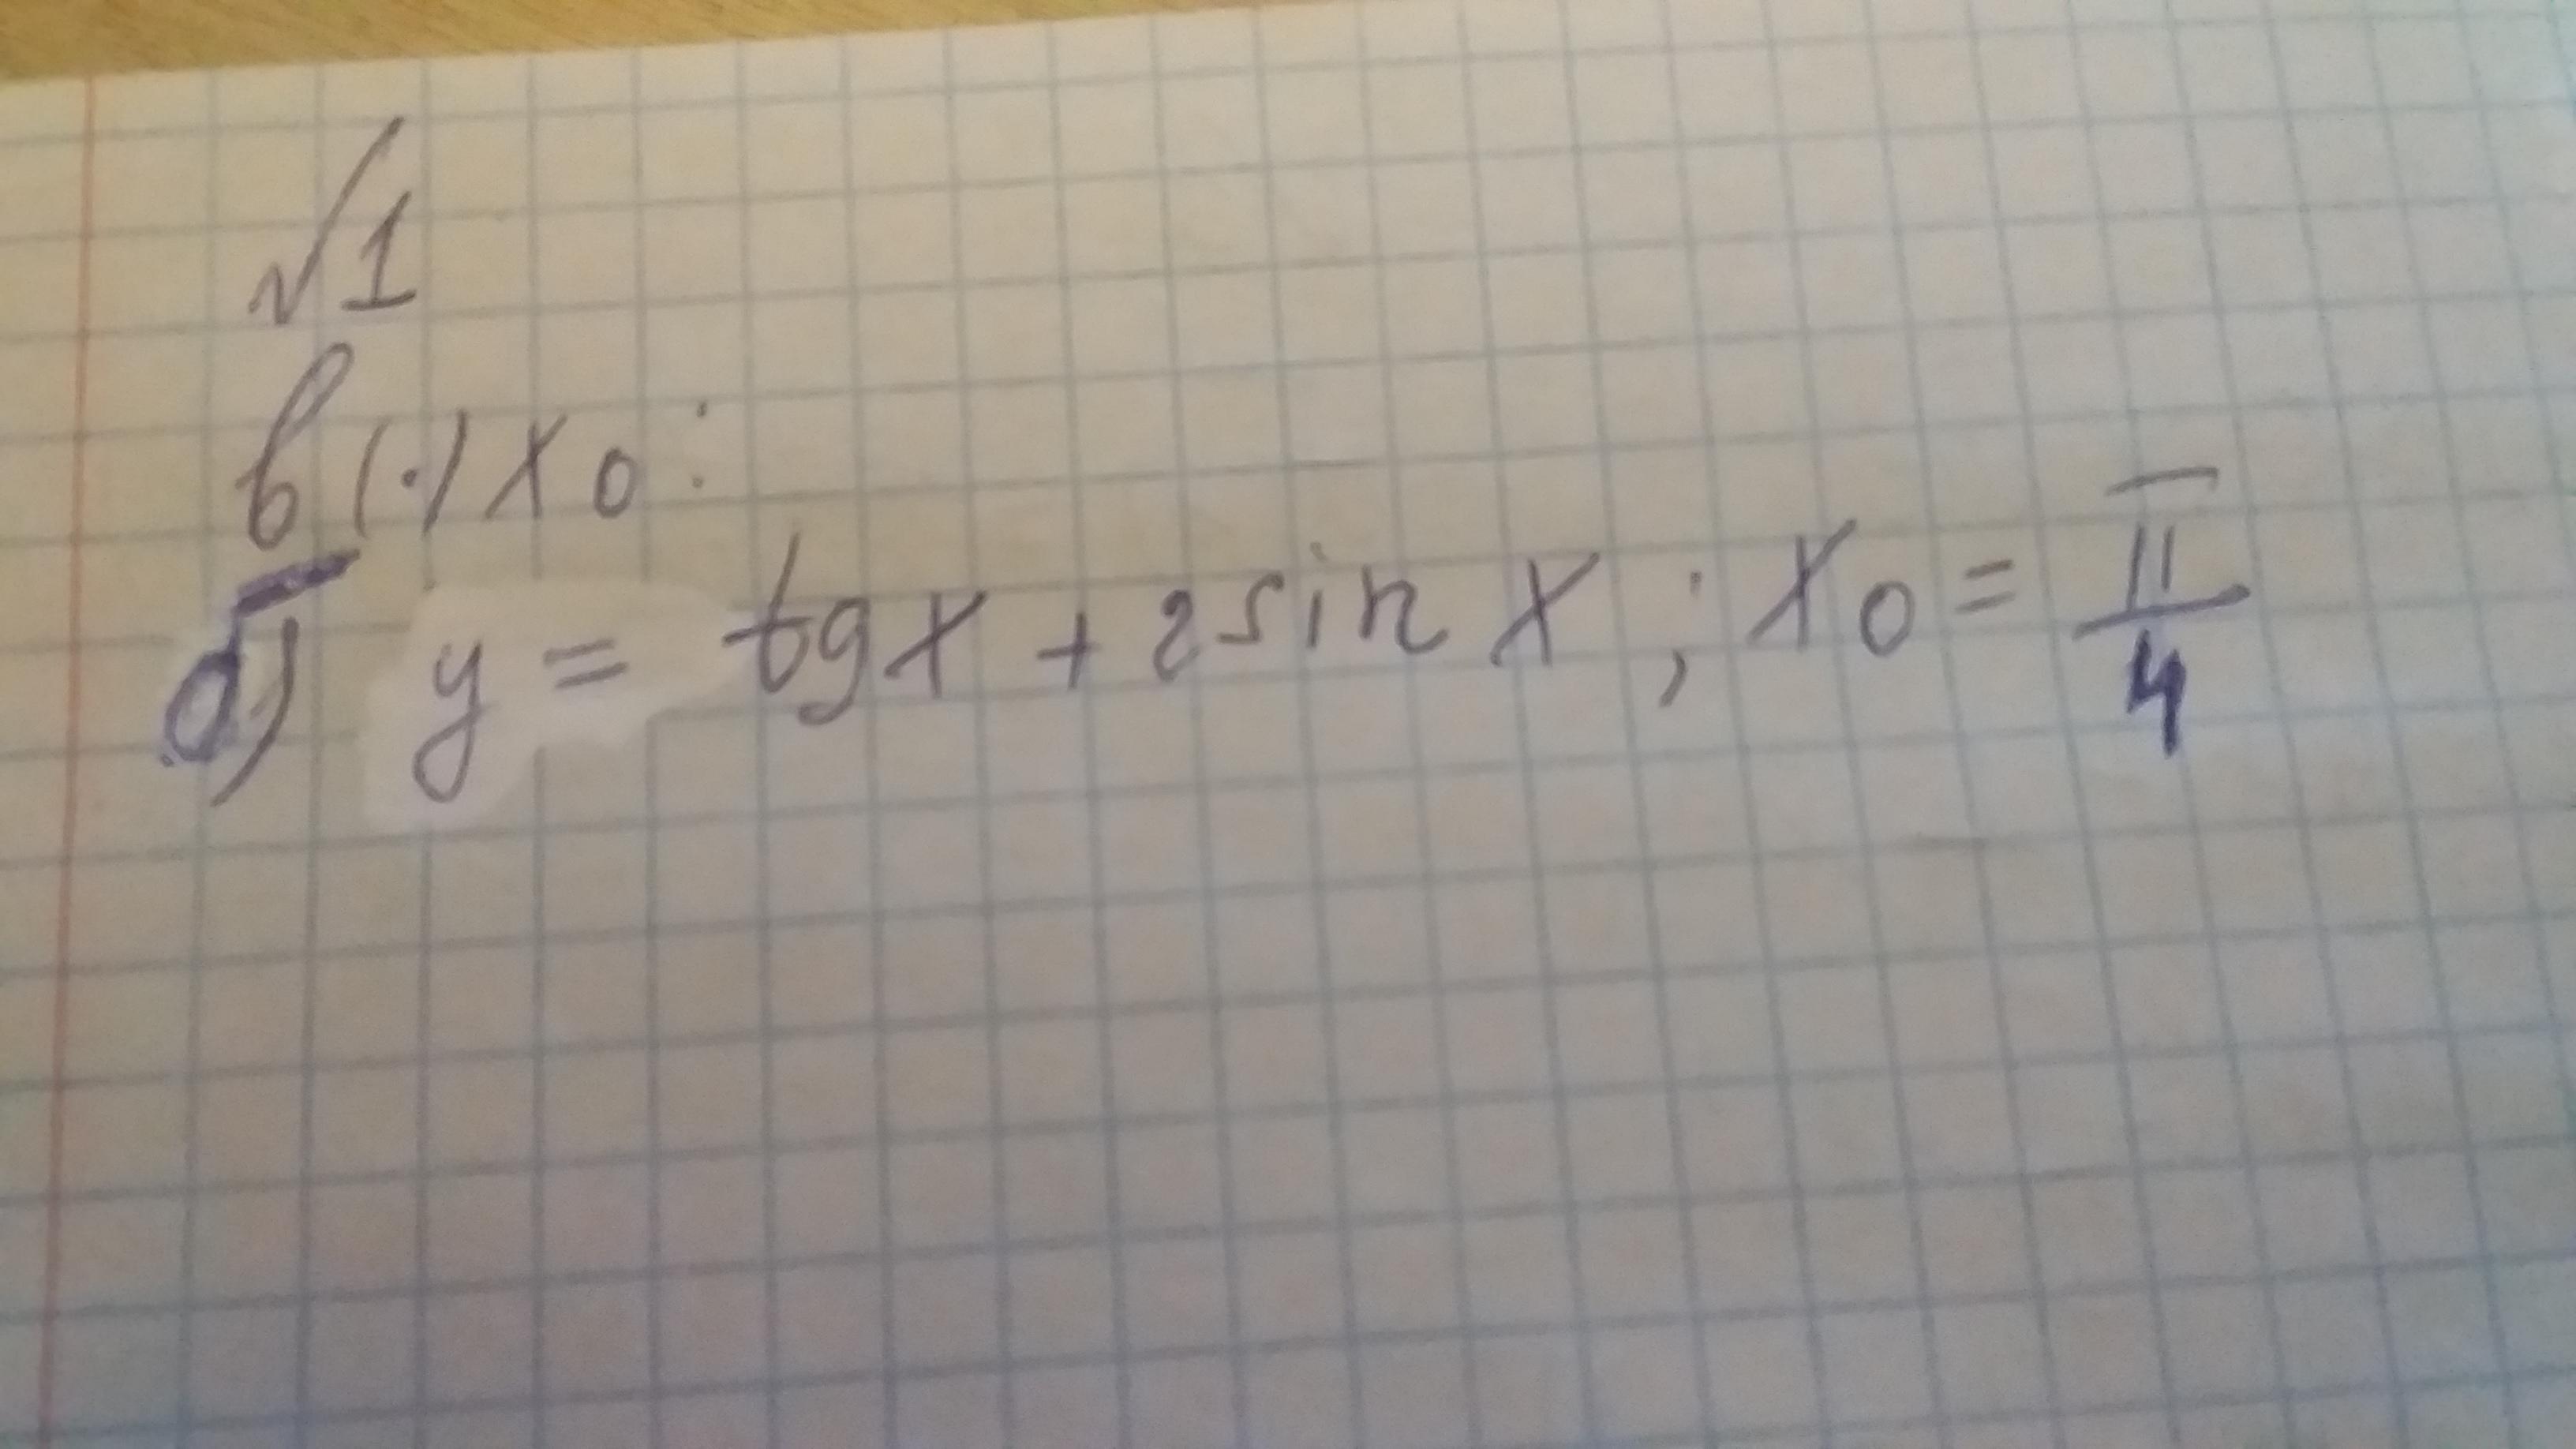 √1
в (·) x0:
б) y = tgx + 2sin x ; x0 = π/4